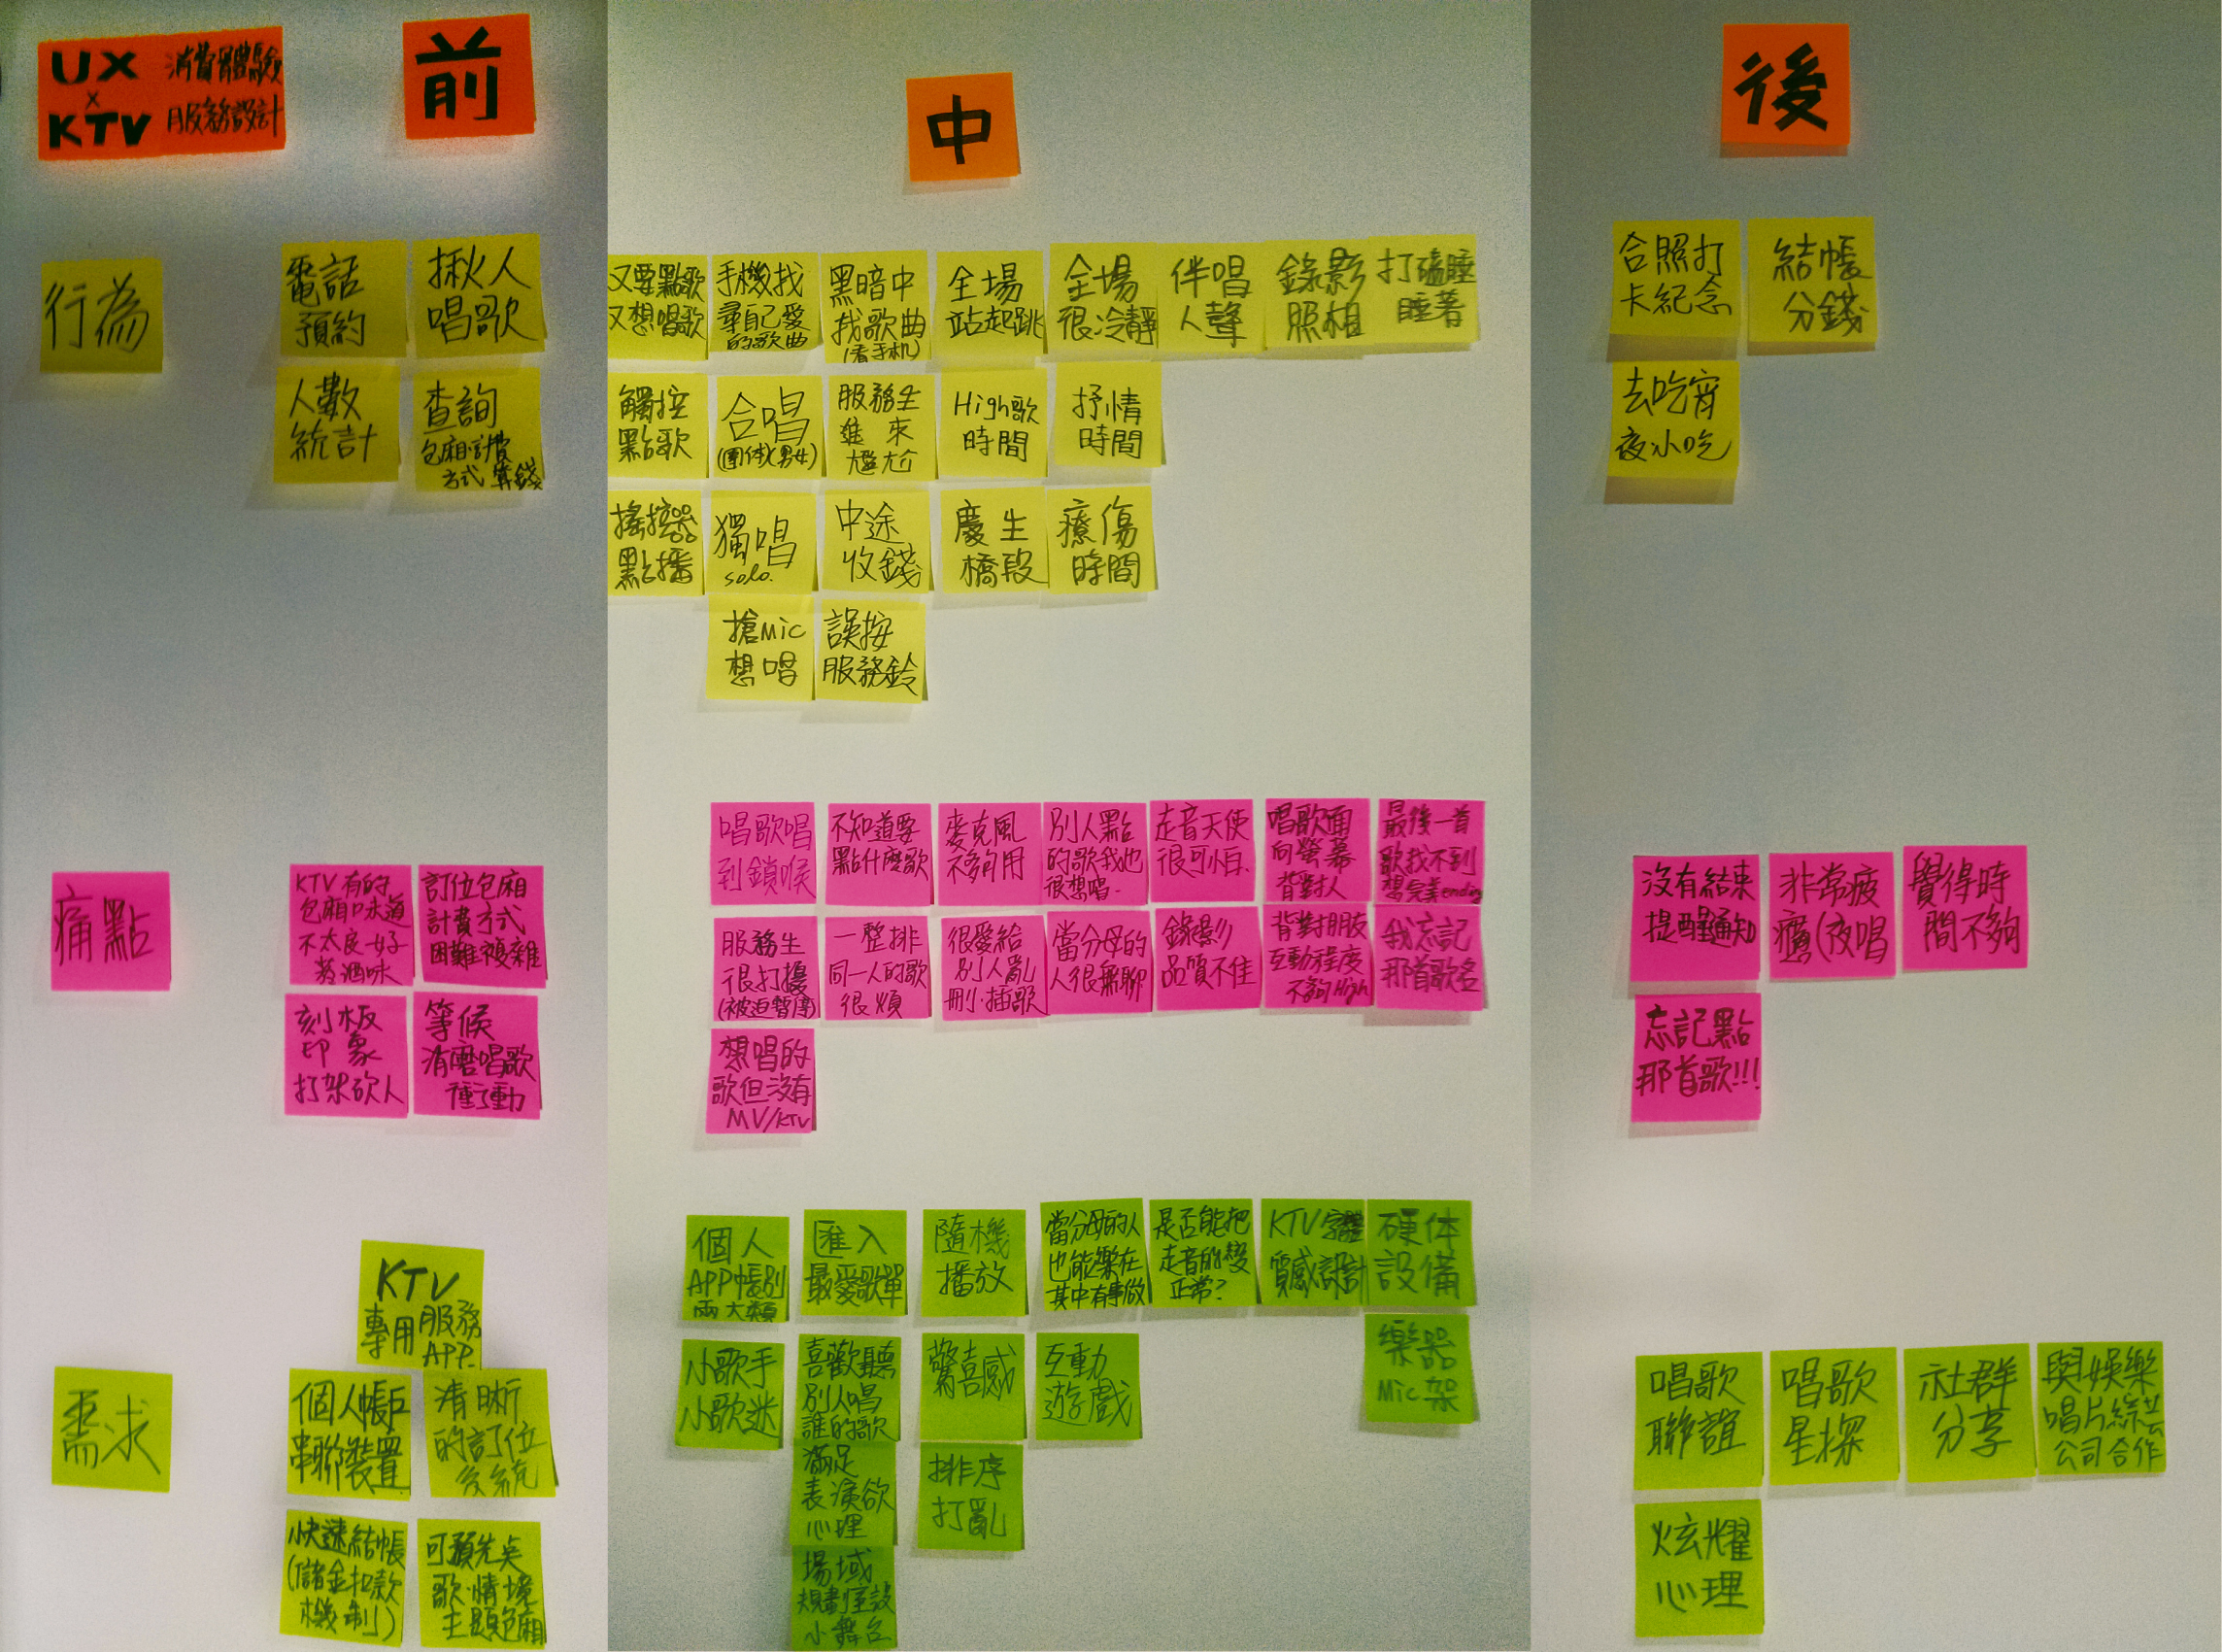 UX
×
KTV
消費體驗
服務設計
前
中
後
行為
電話
預約
揪人
唱歌
人數
統計
查詢
包廂計費
方式 算錢
又要點歌
又想唱歌
手機找
尋自己愛
的歌曲
黑暗中
找歌曲
(看手机)
全場
站起跳
全場
很冷靜
伴唱
人聲
錄影
照相
打磕睡
睡著
觸控
點歌
合唱
(團体)(男女)
服務生
進來
尷尬
High歌
時間
抒情
時間
搖控器
點播
獨唱
solo.
中途
收錢
慶生
橋段
療傷
時間
搶Mic
想唱
誤按
服務鈴
合照打
卡紀念
結帳
分錢
去吃宵
夜小吃
痛點
KTV有的
包廂味道
不太良好
菸酒味
訂位包廂
計費方式
困難複雜
刻板
印象
打架砍人
等候
消磨唱歌
衝動
唱歌唱
到鎖喉
不知道要
點什麼歌
麥克風
不夠用
別人點
的歌我也
很想唱.
走音天使
很可怕.
唱歌面
向螢幕
背對人
最後一首
歌找不到
想完美ending
服務生
很打擾
(被迫暫停)
一整排
同一人的歌
很煩
很愛給
別人亂
刪.插歌
當分母的
人很無聊
錄影
品質不佳
背對朋友
互動程度
不夠High
我忘記
那首歌名
想唱的
歌但沒有
MV/KTV
沒有結束
提醒通知
非常疲
憊(夜唱
覺得時
間不夠
忘記點
那首歌!!!
需求
KTV
專用服務
APP.
個人帳戶
串聯裝置
清晰
的訂位
系統
快速結帳
(儲金扣款
機制)
可預先點
歌.情境
主題包廂
個人
APP帳別
兩大類
匯入
最愛歌單
隨機
播放
當分母的人
也能樂在
其中有事做
是否能把
走音的變
正常?
KTV字體
質感設計
硬体
設備
小歌手
小歌迷
喜歡聽
別人唱
誰的歌
驚喜感
互動
遊戲
樂器
Mic架
滿足
表演欲
心理
排序
打亂
場域
規劃建設
小舞台
唱歌
聯誼
唱歌
星探
社群
分享
與娛樂
唱片綜芸
公司合作
炫耀
心理